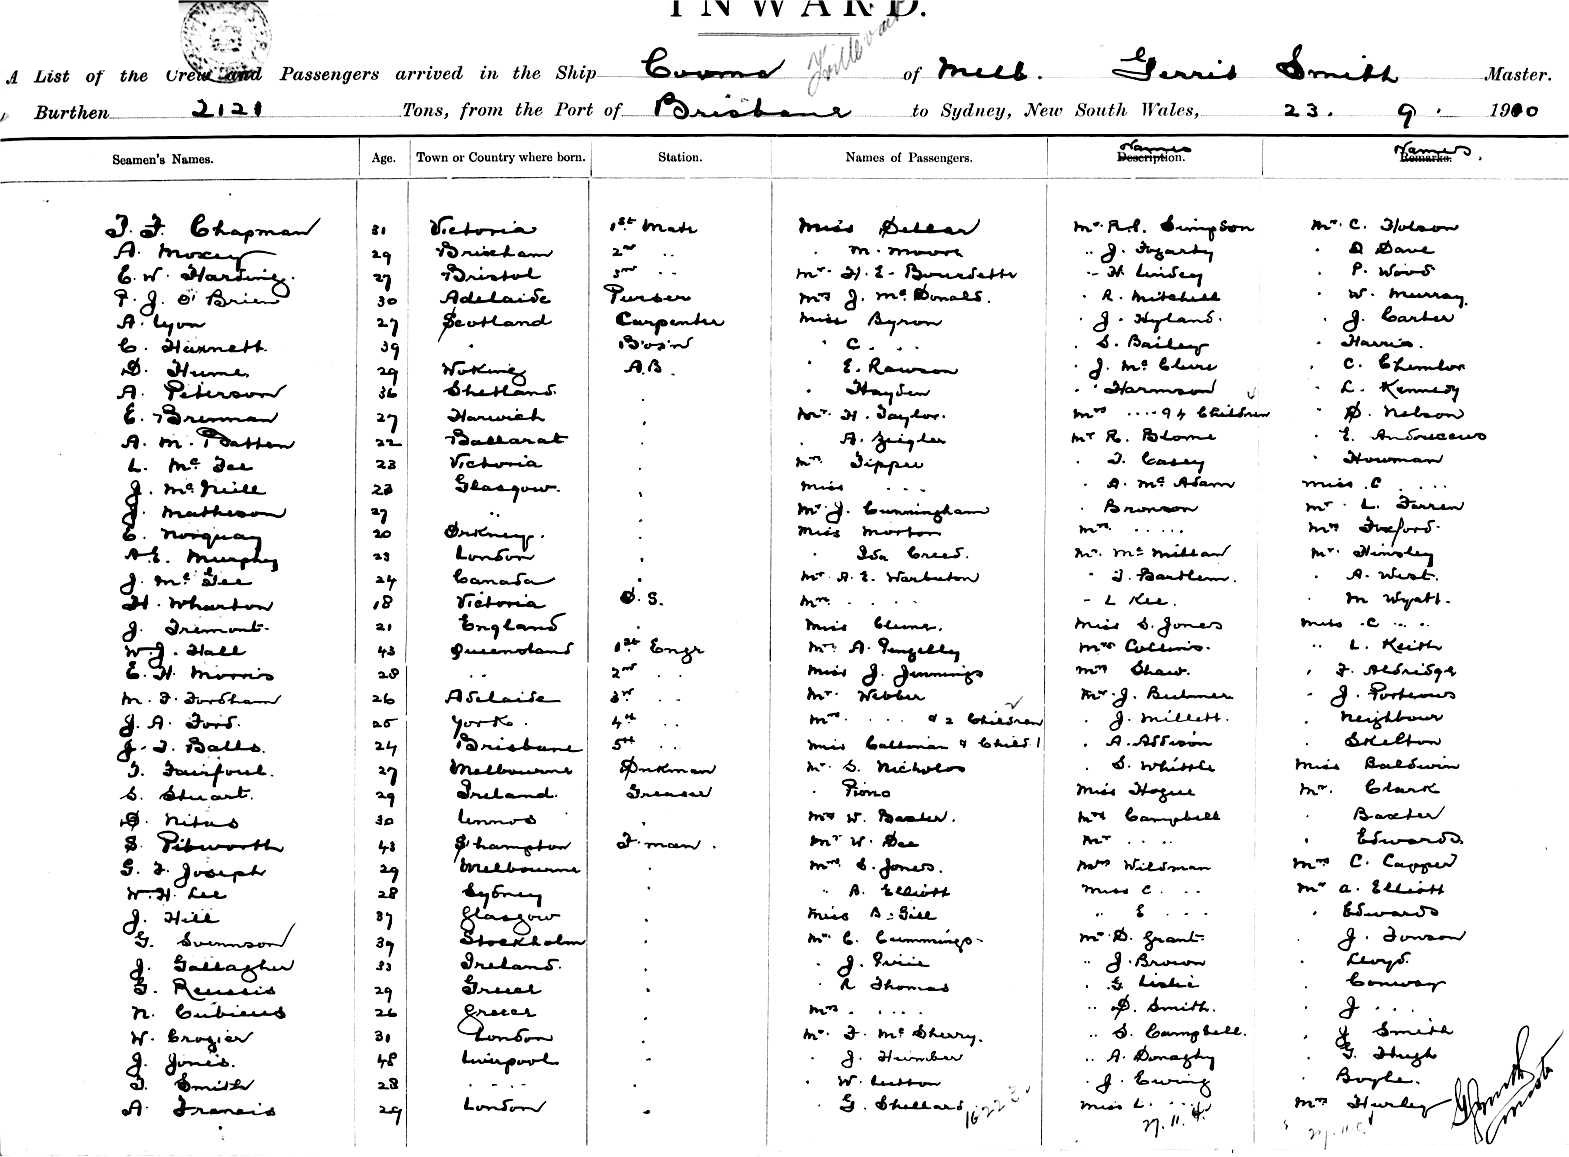 INWARD.
A List of the Crew and Passengers arrived in the Ship Cooma of Melb. Gerris Smith Master.
Burthen 2121 Tons, from the Port of Brisbane to Sydney, New South Wales, 23. 9. 1910
Seamen's Names. Age. Town or Country where born. Station. Names of Passengers. Names Description. Names Remarks.
T. F. Chapman 31 Victoria 1st Mate Miss Dellar Mr R.S. Simpson Mr C. Holson
A. Moxey 29 Brixham 2nd .. . M. Moore .. J. Fogarty . D Dave
C. W. Harding. 27 Bristol 3rd .. Mr H. E. Bourdette .. H Lindsey . P. Wood
P. J. O'Brien 30 Adelaide Purser Mrs J. McDonald. . R. Mitchell . W. Murray.
A. Lyon 27 Scotland Carpenter Miss Byron . J. Hyland. . J. Carter
C. Harnett. 39 . Bos'n . C. .. . S. Bailey . Harris.
D. Hume. 29 Woking A.B. . E. Rawson . J. McClure . C.
A. Peterson 36 Shetland. . . Hayden . Harmson . L. Kennedy
E. Brennan 27 Harwich . Mr H. Taylor. Mrs .... & 4 Children . D. Nelson
A. M. Batten 22 Ballarat . . A. Zeigler Mr R. Blome . E. Andrecews
L. McGee 23 Victoria . Mrs Tipper . T. Casey . Howman
J. McNeill 23 Glasgow. . Miss ... . A. McAdam Miss C ....
J. Matheson 27 .. . Mr J. Cunningham . Bronson Mr L. Farren
C. Norquay 20 Orkney. . Miss Morton Mrs .... Mrs Foxford.
A.E. Murphy 23 London . . Ida Creed. Mr McMillan Mr Hinsley
J. McGee 24 Canada . Mr A. E. Warburton . T. Bartlem. . A. West.
H. Wharton 18 Victoria O.S. Mrs .... - L Kee. . M Wyatt.
J. Tremont. 21 England . Miss Clune. Miss S. Jones Miss C ...
W. J. Hall 43 Queensland 1st Engr Mr A. Pengelly Mrs Collins. .. L. Keith
E. H. Morris 28 .. 2nd .. Miss J. Jennings Mrs Shaw. . F. Aldridge
M. F. Fordham 26 Adelaide 3rd .. Mr Webber Mr J. Bulmer . J. Porteous
J. A. Ford. 25 York. 4th .. Mrs .... & 2 Children . J. Millett. . Neighbour
J. T. Balls. 24 Brisbane 5th .. Miss Caltman & Child 1 . A. Addison . Skelton
T. Fairfoul. 27 Melbourne Dnkman Mr S. Nicholas . S. Whittle Miss Baldwin
S. Stuart. 29 Ireland. Greaser . Piono Miss Hogue Mr. Clark
D. Nitus 30 Lemnos . Mrs W. Baxter. Mrs Campbell . Baxter
S. Pitworth 43 S'hampton F'man. Mr W. Dee Mr .... . Edwards.
G. F. Joseph 29 Melbourne . Mrs S. Jones. Mrs Wildman Mrs C. Capper
W. H. Lee 28 Sydney . .. A. Elliott Miss C ... Mr A. Elliott
J. Hill 37 Glasgow . Miss B. Gill .. E ... . Edwards
G. Svennson 39 Stockholm . Mr C. Cummings. Mr D. Grant. . J. Towson
J. Gallagher 33 Ireland. . . J. Pirie .. J. Brown . Lloyd.
G. Reussis 29 Greece . . R Thomas . G Leslie . Conway
N. Cubieus 26 Greece . Mrs .... .. D. Smith. . J ...
W. Crozier 31 London . Mr F. McSherry. .. S. Campbell. . J Smith
J. Jones. 48 Liverpool . . J. Humber .. A. Donaghy . G. Hugh
T. Smith 28 .... . . W. Lutton . J. Ewing . Boyle.
A. Francis 29 London . . G. Shellard Miss L. .... Mrs Hurley